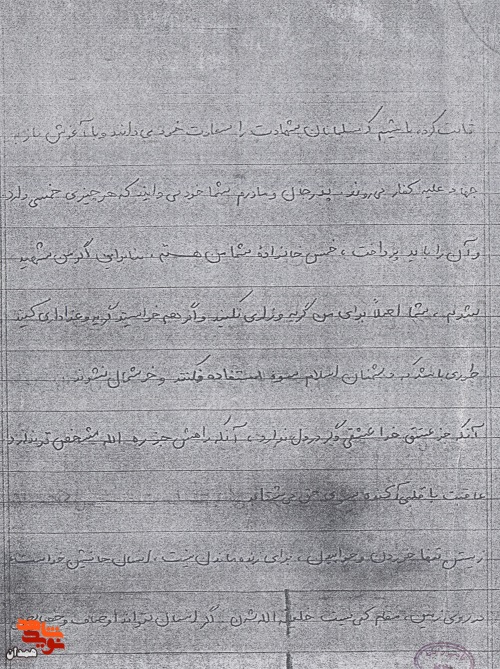 ثابت کرده باشیم که مسلمانان شهادت را سعادت خود می دانند و با آغوش باز به
جهاد علیه کفار می روند. پدر جان و مادرم شما خود می دانید که هر چیزی خمسی دارد
و آن را باید پرداخت، خمس خانواده شما من هستم، بنابراین اگر من شهید
بشوم، شما اصلاً برای من گریه و زاری نکنید و اگر هم خواستید گریه و عزاداری کنید
طوری باشد که دشمنان اسلام سوء استفاده نکنند و خوشحال نشوند.
آنکه جز عشق خدا عشقی دگر در دل ندارد، آنکه راهش جز ره الله مشخص تر ندارد
عاقبت با قلبی آکنده بسوی حق می شتابد
زیستن تنها خوردن و خوابیدن، برای زنده ماندن نیست، انسان جانشین خداست
در روی زمین، مقام کمی نیست خلیفه الله شدن. اگر انسان نتواند اوصاف و
نوید شاهد
همدان